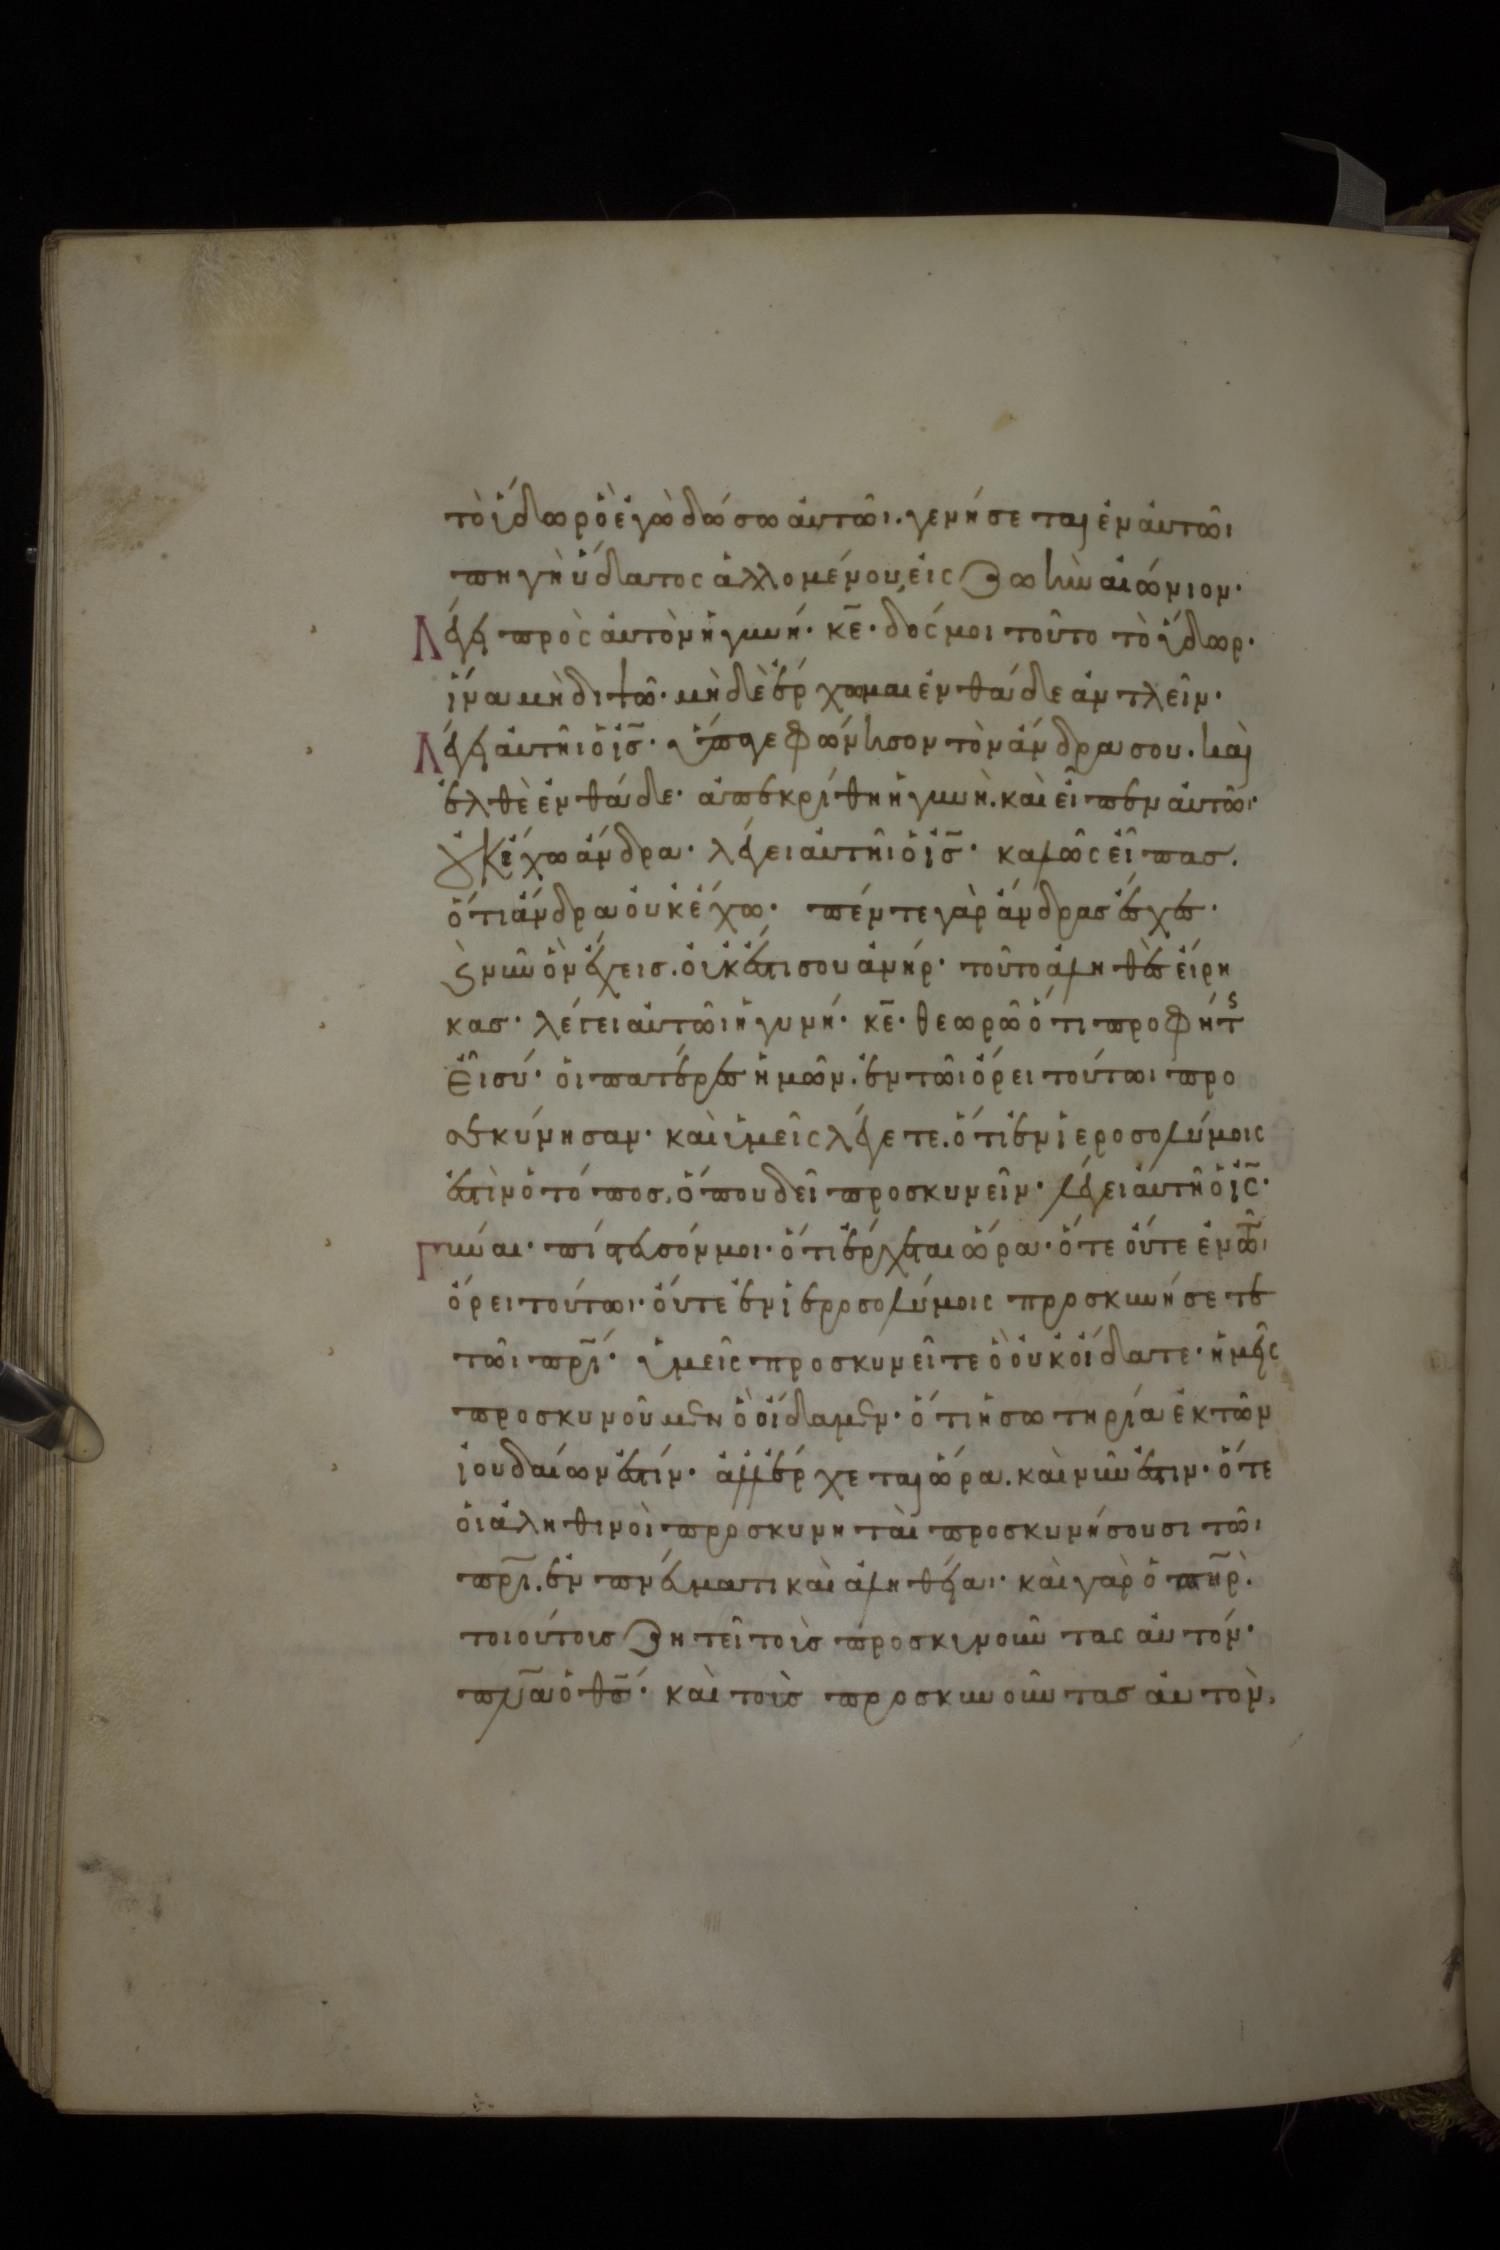 τὸ ὕδωρ ὃ ἐγὼ δώσω αὐτῶι. γενήσεται ἐν αὐτῶι
πηγὴ ὕδατος ἁλλομένου εἰς ζωὴν αἰώνιον·
Λέγει πρὸς αὐτὸν ἡ γυνή· κ̅ε̅· δός μοι τοῦτο τὸ ὕδωρ·
ἵνα μὴ διψῶ· μὴ δὲ ἔρχωμαι ἐνθάδε ἀντλεῖν·
Λέγει αὐτῆι ὁ ι̅σ̅· ὕπαγε φώνησον τὸν ἄνδρα σου. καὶ
ἐλθὲ ἐνθάδε· ἀπεκρίθη ἡ γυνὴ. καὶ εἶπεν αὐτῶι·
οὐκ ἔχω ἄνδρα· λέγει αὐτῆι ὁ ι̅σ̅· καλῶς εἶπας.
ὅτι ἄνδρα οὐκ ἔχω· πέντε γὰρ ἄνδρας ἔσχες·
καὶ νῦν ὃν ἔχεις. οὐκ ἔστι σου ἀνήρ· τοῦτο ἀληθὲς εἴρη
κας· λέγει αὐτῶι ἡ γυνή· κ̅ε̅· θεωρῶ ὅτι προφήτης
εἶ σύ· οἱ πατέρες ἡμῶν. ἐν τῶι ὄρει τούτωι προ
σεκύνησαν· καὶ ὑμεῖς λέγετε. ὅτι ἐν ἱεροσολύμοις
ἐστὶν ὁ τόπος, ὅπου δεῖ προσκυνεῖν· λέγει αὐτῆ ὁ ι̅ς̅·
Γύναι· πίστευσόν μοι· ὅτι ἔρχεται ὥρα· ὅτε οὔτε ἐν τῶι
ὄρει τούτωι· οὔτε ἐν ἱεροσολύμοις προσκυνήσετε
τῶι π̅ρ̅ι̅· ὑμεῖς προσκυνεῖτε ὃ οὐκ οἴδατε· ἡμεῖς
προσκυνοῦμεν ὃ οἴδαμεν· ὅτι ἡ σωτηρία ἐκ τῶν
ἰουδαίων ἐστίν· ἀλλ' ἔρχεται ὥρα. καὶ νῦν ἐστιν· ὅτε
οἱ ἀληθινοὶ προσκυνηταὶ προσκυνήσουσι τῶι
π̅ρ̅ι̅. ἐν πνεύματι καὶ ἀληθείαι· καὶ γὰρ ὁ π̅η̅ρ̅·
τοιούτους ζητεῖ τοὺς προσκυνοῦντας αὐτόν·
π̅ν̅α̅ ὁ θ̅ς̅· καὶ τοὺς προσκυνοῦντας αὐτὸν,